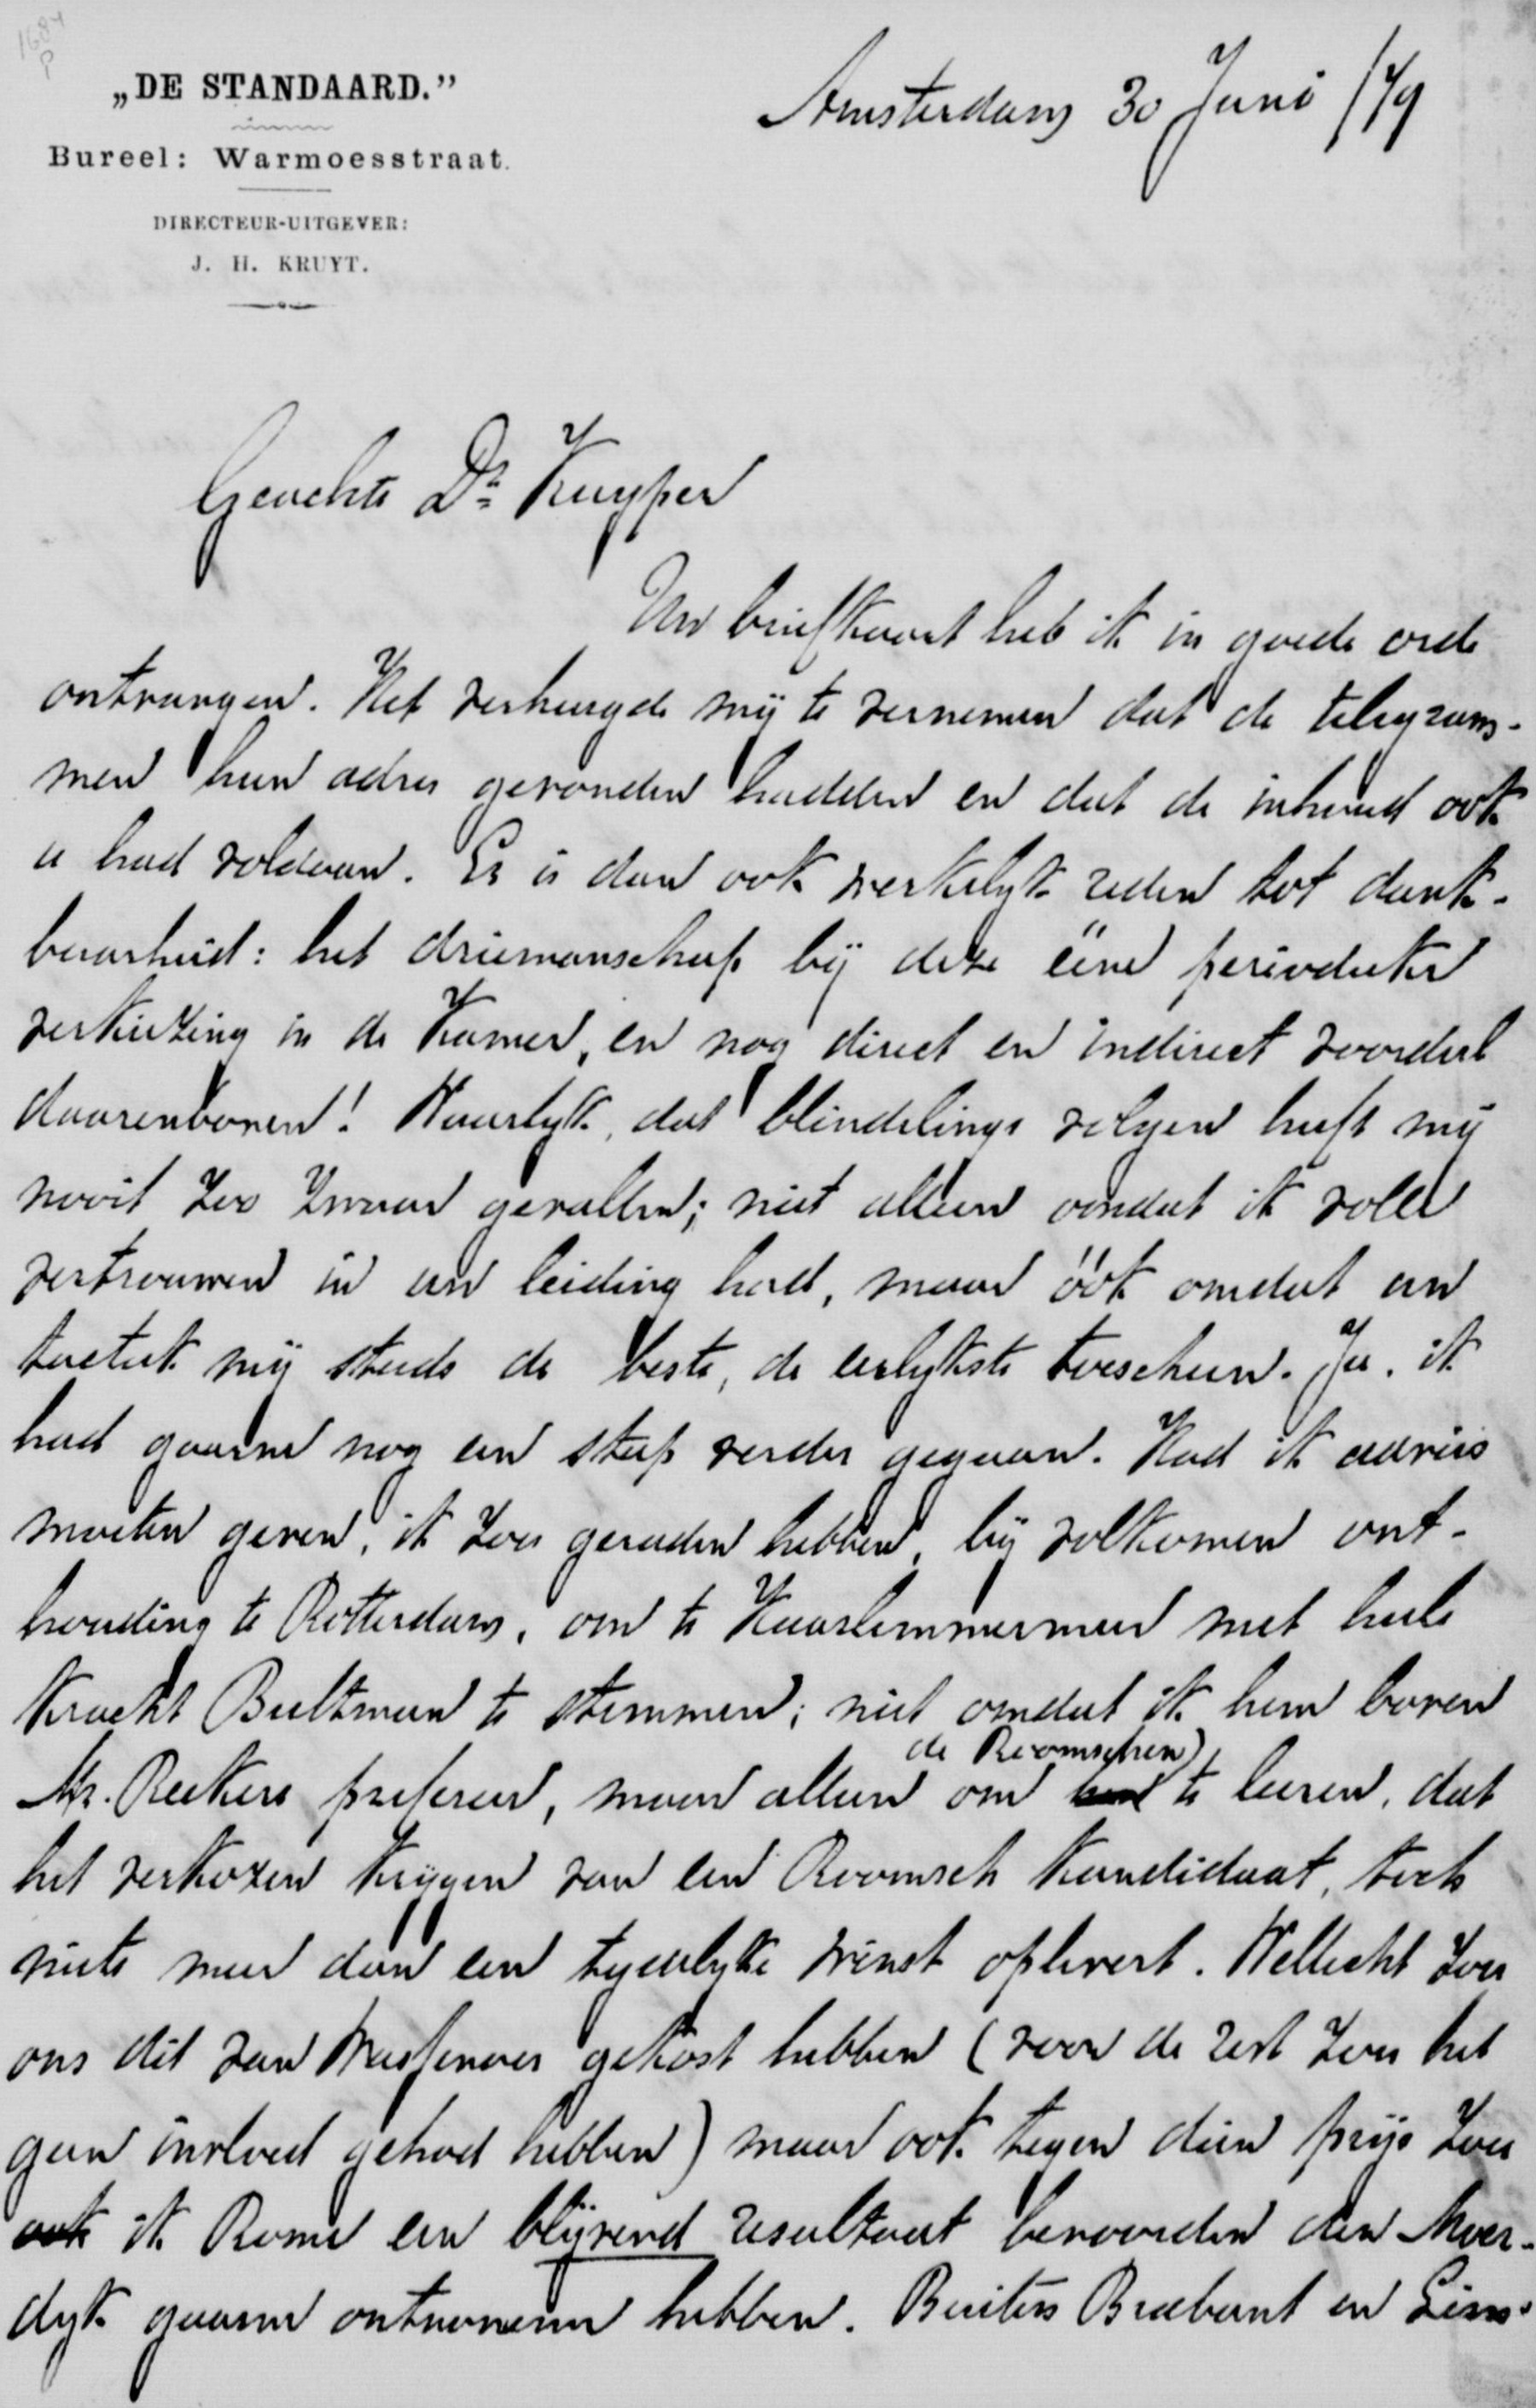 1684
P
„DE STANDAARD.”
Bureel: Warmoesstraat.
DIRECTEUR-UITGEVER:
J. H. KRUYT.
Amsterdam 30 Juni /79
Geachte Dr Kuyper
Uw briefkaart heb ik in goede orde
ontvangen. Het verheugde mij te vernemen dat de telegram-
men hun adres gevonden hadden en dat de inhoud ook
u had voldaan. Er is dan ook werkelijk reden tot dank-
baarheid: het driemanschap bij deze ééne periodieke
verkiezing in de Kamer, en nog direct en indirect voordeel
daarenboven! Waarlijk, dat blindelings volgen heeft mij
nooit zoo zwaar gevallen; niet alleen omdat ik volle
vertrouwen in uw leiding had, maar óók omdat uw
tactiek mij steeds de beste, de eerlijkste toescheen. Ja, ik
had gaarne nog een stap verder gegaan. Had ik advies
moeten geven, ik zou geraden hebben, bij volkomen ont-
houding te Rotterdam, om te Haarlemmermeer met heele
kracht Bultman te stemmen; niet omdat ik hem boven
de Roomschen
Mr. Reekers prefereer, maar alleen om te leeren, dat
het verkozen krijgen van een Roomsch kandidaat, toch
niets meer dan een tijdelijke winst oplevert. Wellicht zou
ons dit van Wassenaer gekost hebben (voor de rest zou het
geen invloed gehad hebben) maar ook tegen dien prijs zou
ook ik Rome een blijvend resultaat benoorden den Moer-
dijk gaarne ontnomen hebben. Buiten Brabant en Lim-